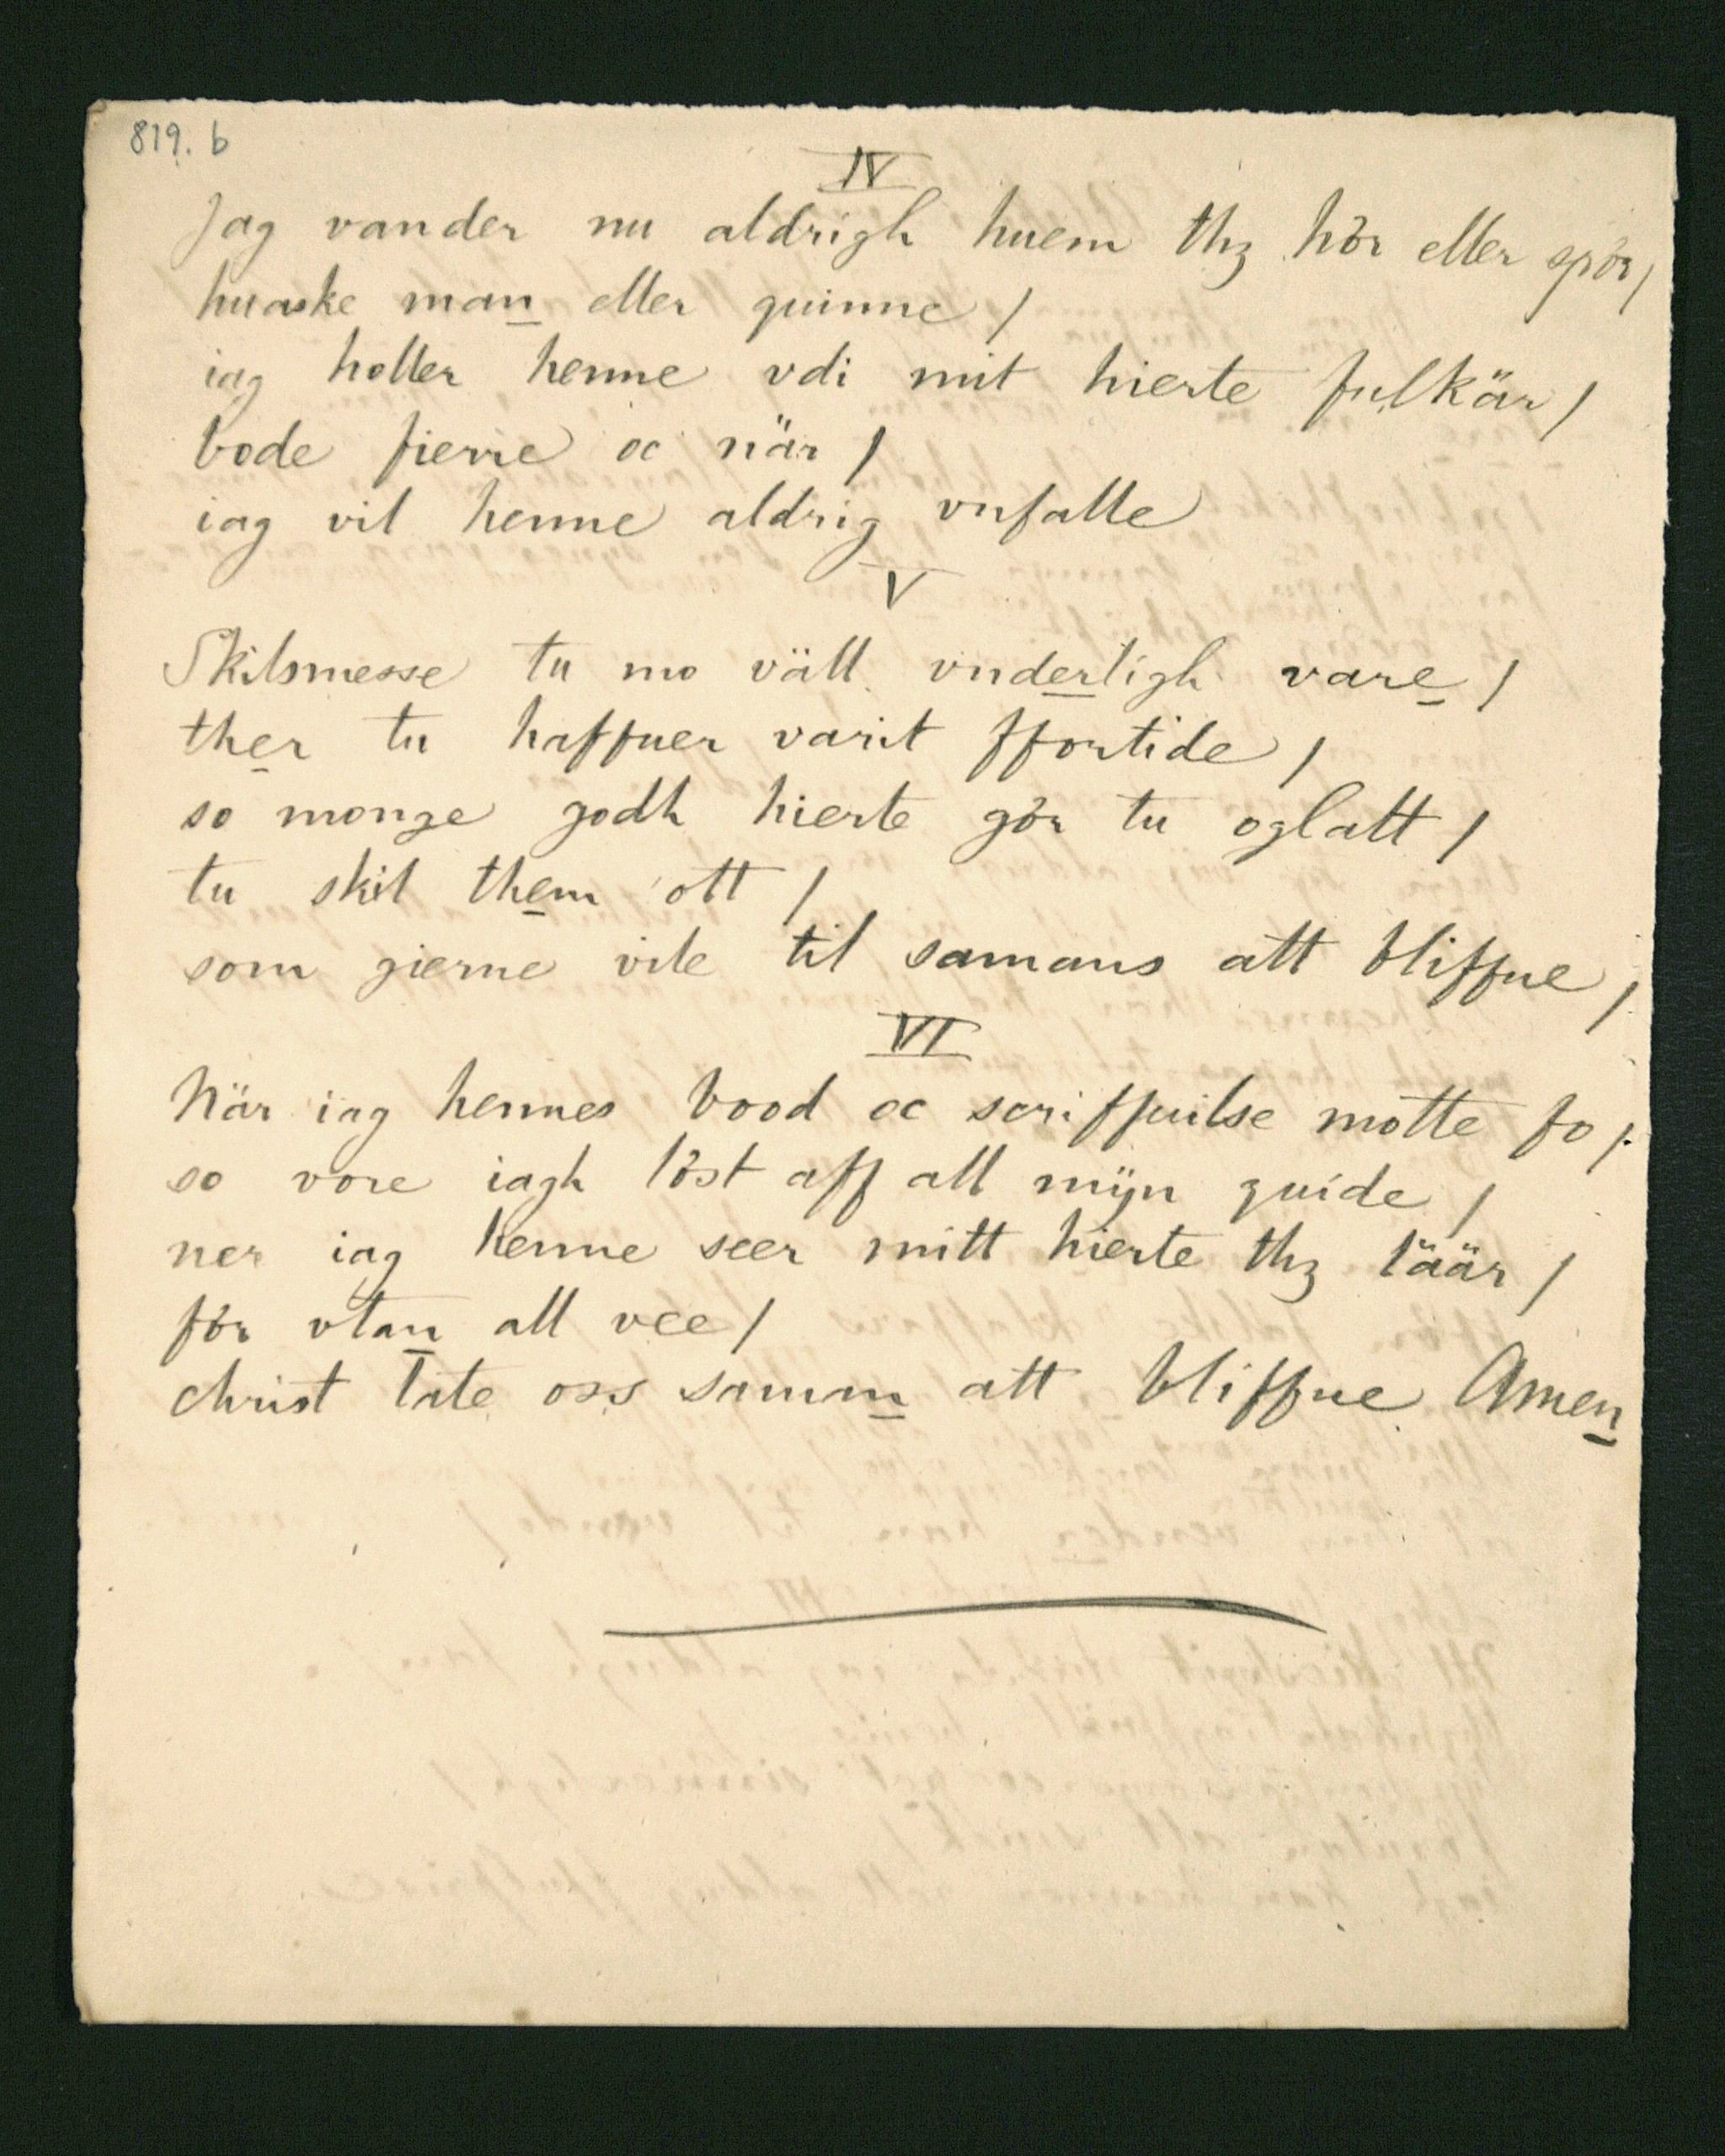 819. b
IV
Jag vander nu aldrigh huem thz hör eller spör /
huaske man eller quinne /
iag holler henne vdi mit hierte fulkär /
bode fierre oc när /
iag vil henne aldrig vnfalle
V
Skilsmesse tu mo väll vnderligh vare /
ther tu haffuer varit ffortide /
so monge godh hierte gör tu oglatt /
tu skil them ott /
som gierne vile til samans att bliffue /
VI
När iag hennes bood oc scriffuilse motte fo /
so vore iagh löst aff all mijn quide /
ner iag henne seer mitt hierte thz läär /
för vtan all vee /
christ late oss samman att bliffue Amen